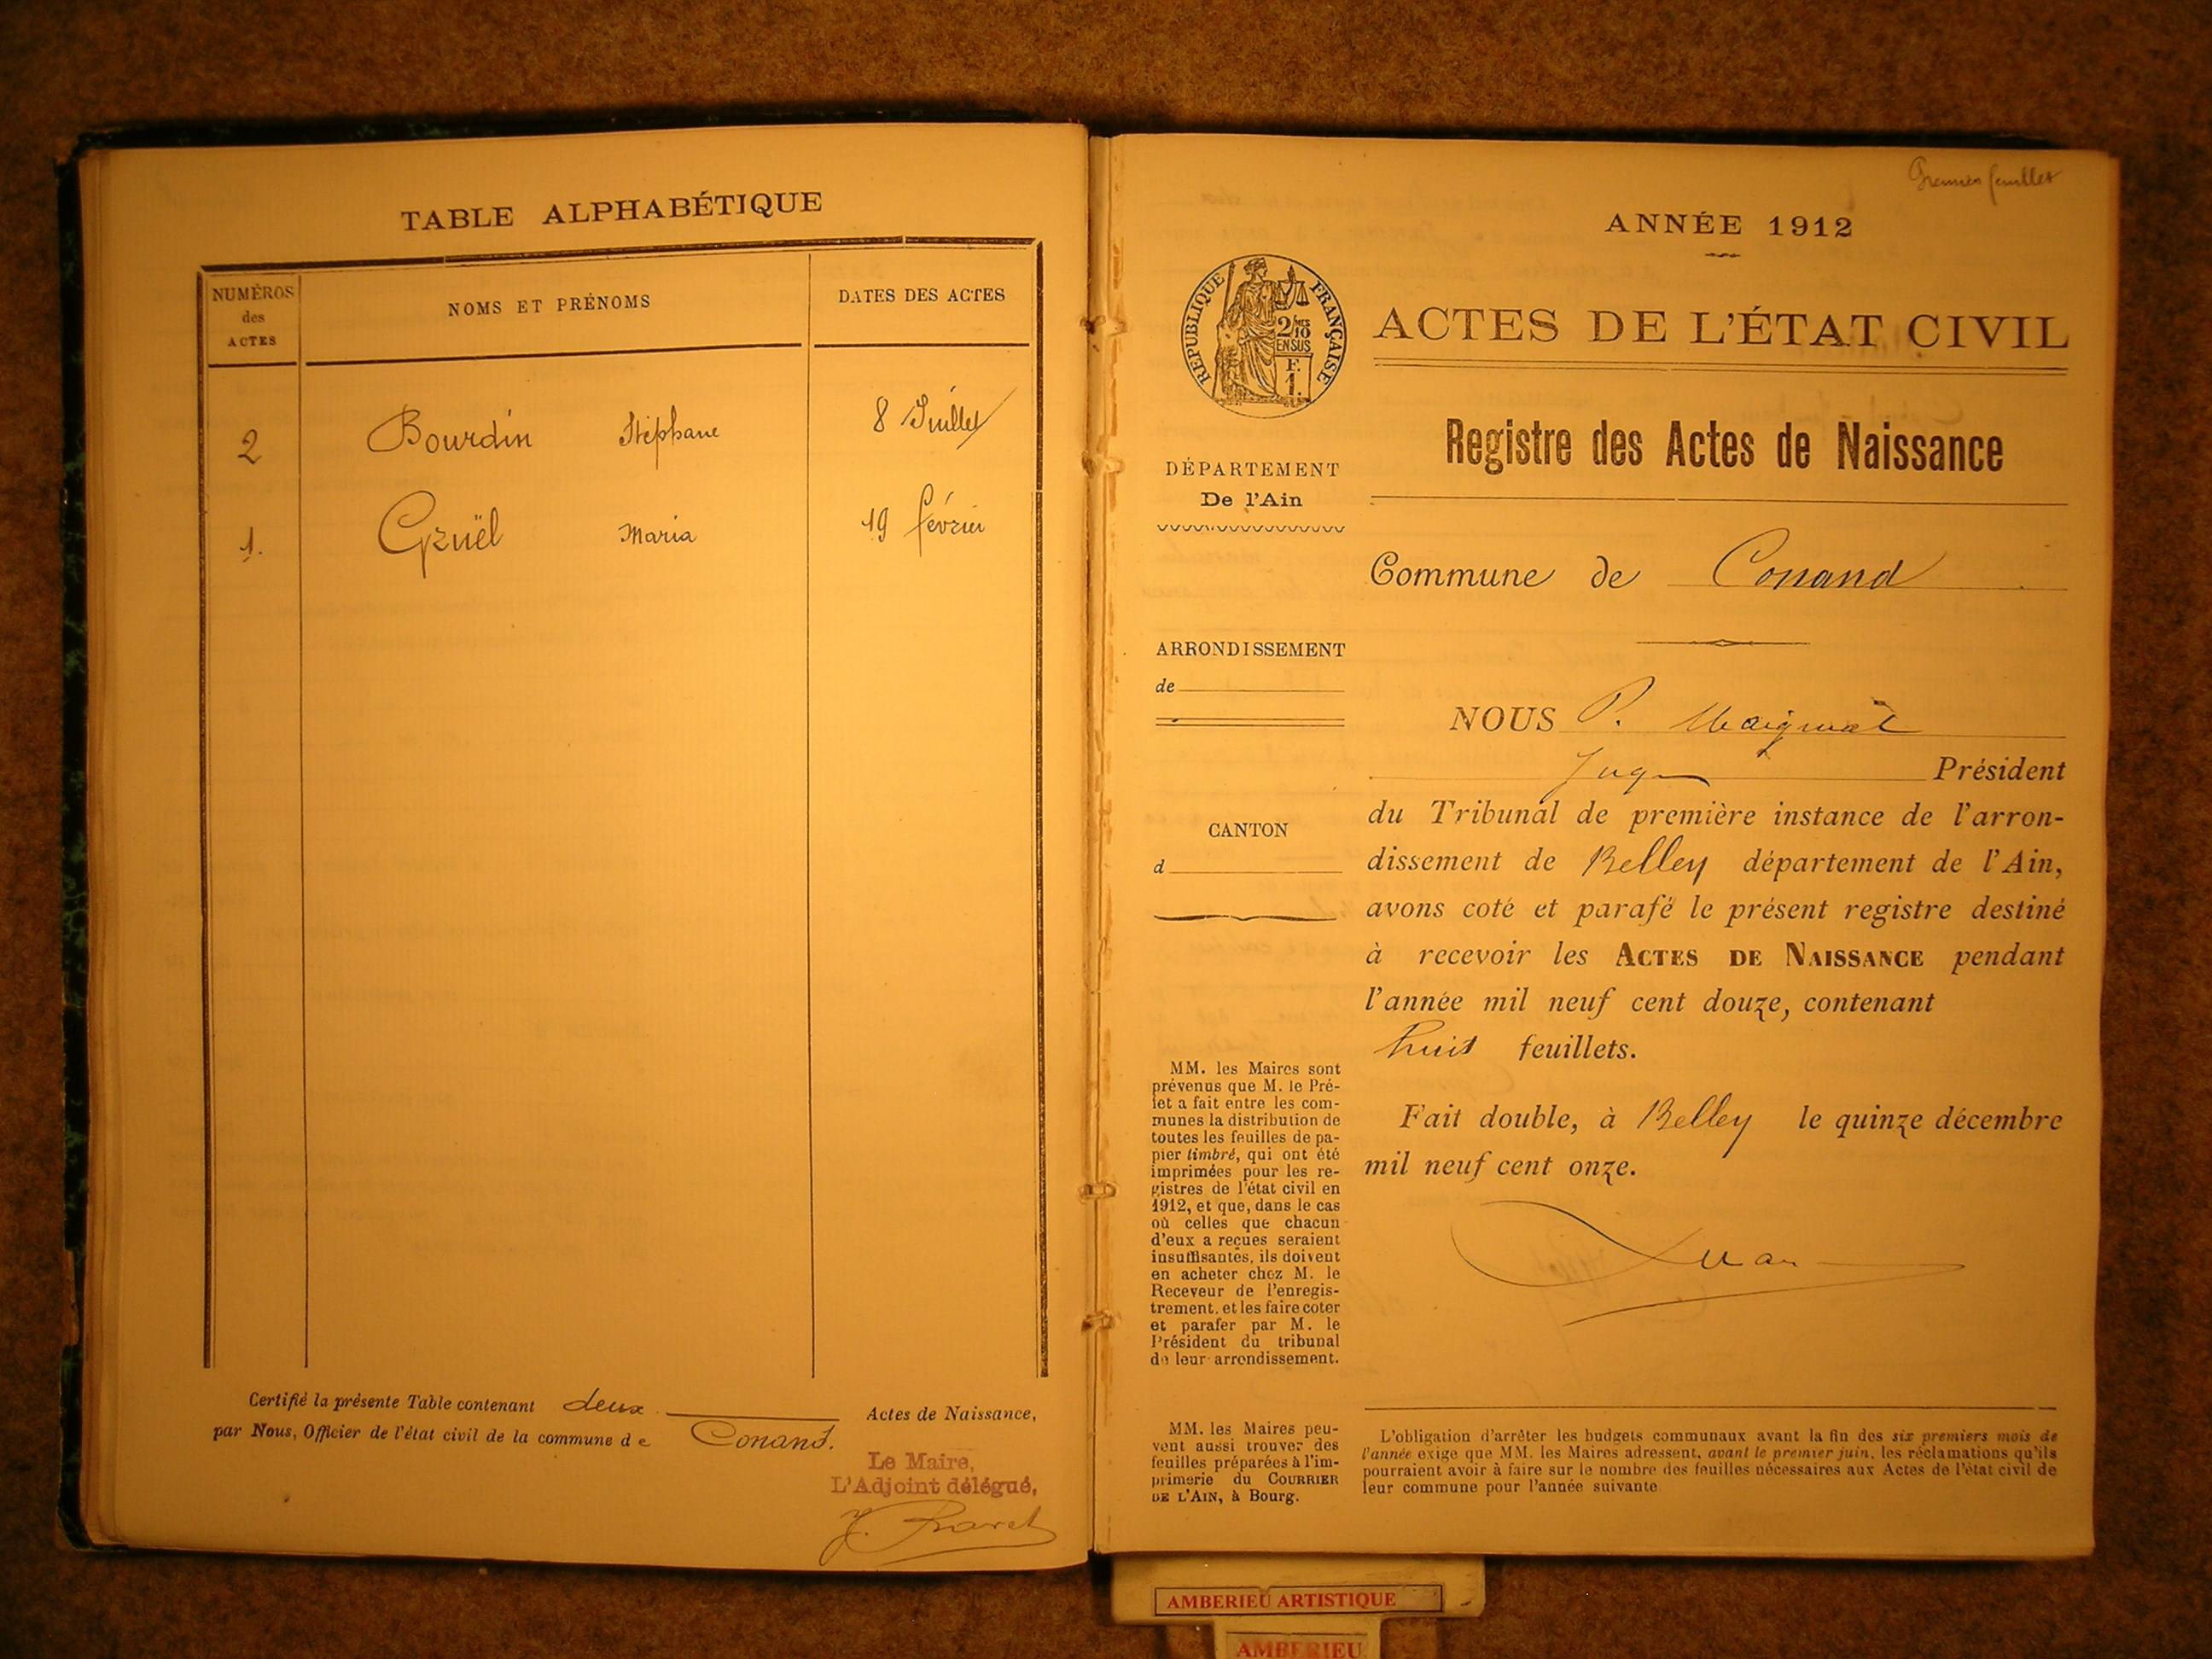 TABLE ALPHABÉTIQUE
NUMÉROS
des
ACTES
NOMS ET PRÉNOMS
DATES DES ACTES
2 Bourdin Stéphane 8 Juillet
1. Gruël Maria 19 février
Certifié la présente Table contenant deux Actes de Naissance,
par Nous, Officier de l'état civil de la commune de Conand.
Le Maire,
L'Adjoint délégué,
Premier feuillet
ANNÉE 1912
RÉPUBLIQUE FRANÇAISE
2/10 MES
EN SUS
F.
1.
ACTES DE L'ÉTAT CIVIL
Registre des Actes de Naissance
DÉPARTEMENT
De l'Ain
Commune de Conand
ARRONDISSEMENT
de
NOUS P.
Juge Président
du Tribunal de première instance de l'arron-
CANTON
d
dissement de Belley département de l'Ain,
avons coté et parafé le présent registre destiné
à recevoir les ACTES DE NAISSANCE pendant
l'année mil neuf cent douze, contenant
huit feuillets.
Fait double, à Belley le quinze décembre
mil neuf cent onze.
MM. les Maires sont
prévenus que M. le Pré-
fet a fait entre les com-
munes la distribution de
toutes les feuilles de pa-
pier timbré, qui ont été
imprimées pour les re-
gistres de l'état civil en
1912, et que, dans le cas
où celles que chacun
d'eux a reçues seraient
insuffisantes, ils doivent
en acheter chez M. le
Receveur de l'enregis-
trement. et les faire coter
et parafer par M. le
Président du tribunal
de leur arrondissement.
MM. les Maires peu-
vent aussi trouver des
feuilles préparées à l'im-
primerie du COURRIER
DE L'AIN, à Bourg.
L'obligation d'arrêter les budgets communaux avant la fin des six premiers mois de
l'année exige que MM. les Maires adressent, avant le premier juin, les réclamations qu'ils
pourraient avoir à faire sur le nombre des feuilles nécessaires aux Actes de l'état civil de
leur commune pour l'année suivante
AMBERIEU ARTISTIQUE
AMBERIEU